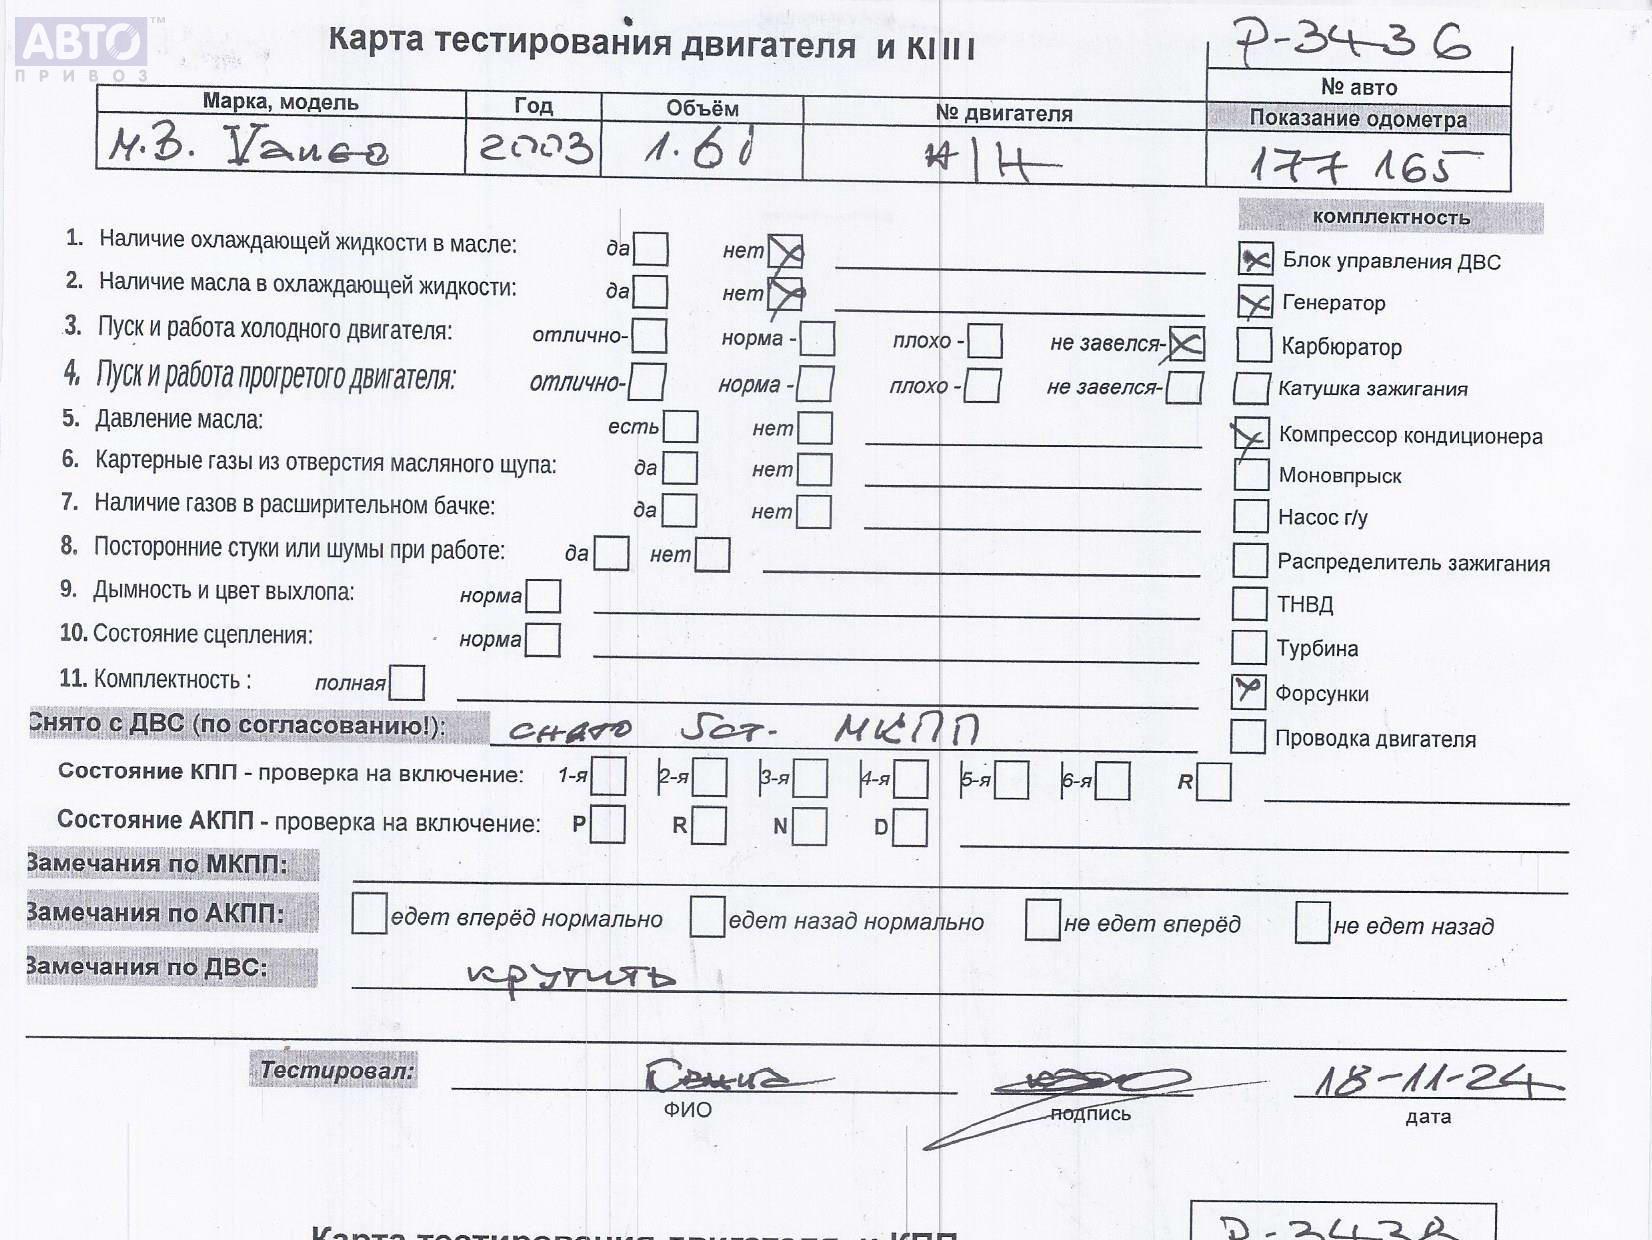 АВТО™
ПРИВОЗ
Карта тестирования двигателя и КПП
P-3436
№ авто
Марка, модель Год Объём № двигателя Показание одометра
M.B. Vaneo 2003 1.6i 177 165
комплектность
1. Наличие охлаждающей жидкости в масле: да нет
Блок управления ДВС
2. Наличие масла в охлаждающей жидкости: да нет
Генератор
3. Пуск и работа холодного двигателя: отлично- норма - плохо - не завелся-
Карбюратор
4. Пуск и работа прогретого двигателя: отлично- норма - плохо - не завелся-
Катушка зажигания
5. Давление масла: есть нет
Компрессор кондиционера
6. Картерные газы из отверстия масляного щупа: да нет
Моновпрыск
7. Наличие газов в расширительном бачке: да нет
Насос г/у
8. Посторонние стуки или шумы при работе: да нет
Распределитель зажигания
9. Дымность и цвет выхлопа: норма
ТНВД
10. Состояние сцепления: норма
Турбина
11. Комплектность : полная
Форсунки
Снято с ДВС (по согласованию!): снято 5ст. МКПП
Проводка двигателя
Состояние КПП - проверка на включение: 1-я 2-я 3-я 4-я 5-я 6-я R
Состояние АКПП - проверка на включение: P R N D
Замечания по МКПП:
Замечания по АКПП: едет вперёд нормально едет назад нормально не едет вперёд не едет назад
Замечания по ДВС: крутить
Тестировал: 18-11-24
ФИО подпись дата
Карта тестирования двигателя и КПП
P-3438